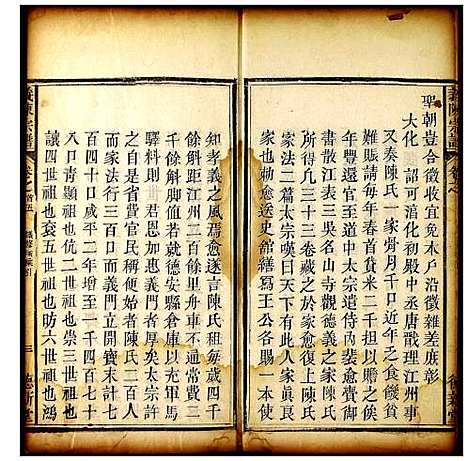 聖朝豈合徵收宜免本戶沿徵雜差庶彰
大化　　詔可洎化初殿中丞唐戬理江州事
又奏陳氏一家骨月千口近年之食餽貧
難賑請每年春首貸米二千石擔以贍之俟
年豐還官至道中太宗遣愈賫御
書散江表三吳名山寺觀德義之家陳氏
所得凡三十三卷藏之於家愈復上陳氏
家法二篇太宗嘆曰天下有此人家眞良
家也勅愈送史舘繕寫王公各賜一本使
知孝義之風焉愈遂言陳氏租每歲四千
餘斛舟江州若就德安縣倉庫以充軍馬
驛料則　世君恩加惠義門者厚矣太宗許
之自是省費官民稱便始者陳氏二百人
而家法行三百口而義門立開寶末計七
百四十口咸平二年增至一千四百七十
一口靑世祖也伉二世祖也崇三世祖也
讓四世祖也袞五世祖也昉六世祖也鴻
義陳宗譜
卷之首五
三
德新堂